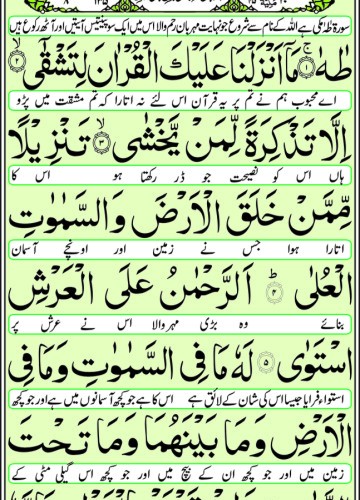 سورۂ طٰہٰ مکی ہے اللہ کے نام سے شروع جو نہایت مہربان رحم والا اس میں ایک سو پینتیس آیتیں اور آٹھ رکوع ہیں
طٰهٰ ۚ‏﴿۱﴾ مَاۤ اَنْزَلْنَا عَلَيْكَ الْقُرْاٰنَ لِتَشْقٰٓى ۙ‏﴿۲﴾
اے محبوب ہم نے تم پر یہ قرآن اس لئے نہ اتارا کہ تم مشقت میں پڑو
اِلَّا تَذْكِرَةً لِّمَنْ يَّخْشٰى ۙ‏﴿۳﴾ تَنْزِيْلًا
ہاں اس کو نصیحت جو ڈر رکھتا ہو اس کا
مِّمَّنْ خَلَقَ الْاَرْضَ وَالسَّمٰوٰتِ
اتارا ہوا جس نے زمین اور اونچے آسمان
الْعُلٰى ؕ‏﴿۴﴾ اَلرَّحْمٰنُ عَلَى الْعَرْشِ
بنائے وہ بڑی مہر والا اس نے عرش پر
اسْتَوٰى ‏﴿۵﴾ لَهٗ مَا فِى السَّمٰوٰتِ وَمَا فِى
استواء فرمایا جیسا اس کی شان کے لائق ہے اس کا ہے جو کچھ آسمانوں میں ہے اور جو کچھ
الْاَرْضِ وَمَا بَيْنَهُمَا وَمَا تَحْتَ
زمین میں اور جو کچھ ان کے بیچ میں اور جو کچھ اس گیلی مٹی کے